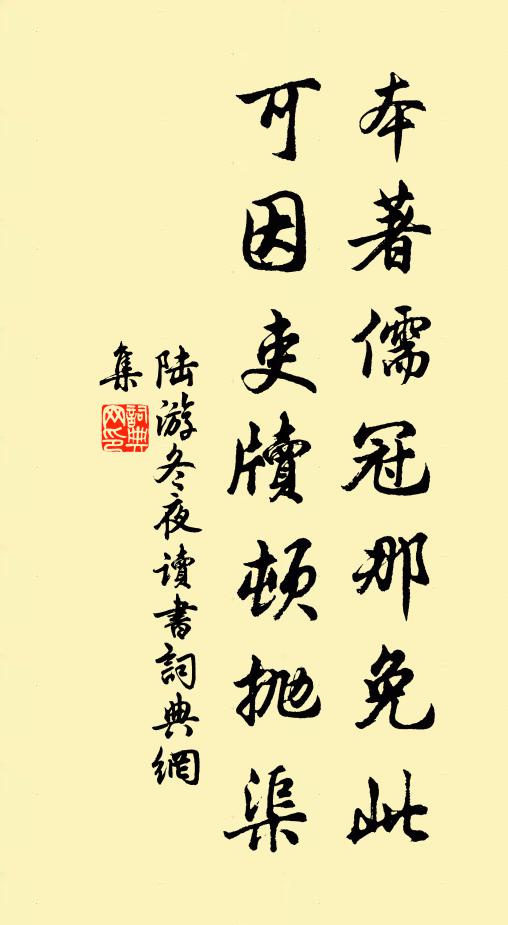 本著儒冠那免此
可因吏牘頓拋渠
陸游冬夜讀書詞典網
集
詞典
网印